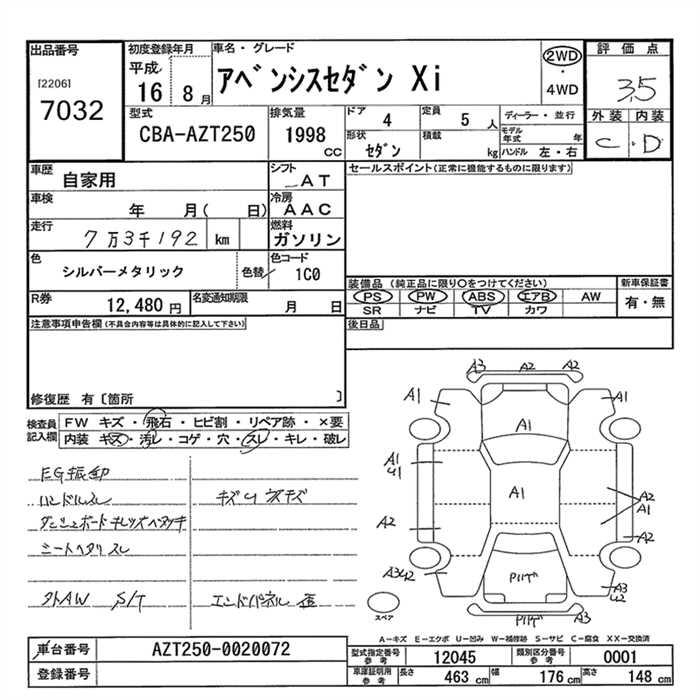 出品番号
[2206]
7032
初度登録年月
平成
16 8月
車名・グレード
アベンシスセダン Xi
2WD
・
4WD
評価点
3,5
外装 内装
C・D
型式
CBA-AZT250
排気量
1998 CC
ドア 4
定員 5 人
形状 セダン
積載 kg
ディーラー・並行
モデル年式 年
ハンドル 左・右
車歴
自家用
シフト
AT
セールスポイント(正常に機能するものに限ります)
車検
年 月( 日)
冷房
AAC
走行
7万3千192 km
燃料
ガソリン
色
シルバーメタリック
色替
色コード
1C0
装備品(純正品に限り〇をつけてください)
PS PW ABS エアB AW
SR ナビ TV カワ
新車保証書
有・無
R券
12,480 円
名変通知期限
月 日
後日品
注意事項申告欄(不具合内容等は具体的に記入して下さい)
修復歴 有〔箇所 〕
検査員記入欄
FW キズ・飛石・ヒビ割・リペア跡・×要
内装 キズ・汚レ・コゲ・穴・スレ・キレ・破レ
EG振動
ハンドルスレ
ダッシュボードキレツベタツキ
シートヘタリ スレ
キズU
外AW S/T
エンドパネル 歪
A3 A2 A2
A1 A1
A1
A1
U1
A1
A2
A1
A2 A2
A3U2
A3
U2
A3
スペア
A-キズ E-エクボ U-凹み W-補修跡 S-サビ C-腐食 XX-交換済
車台番号
AZT250-0020072
登録番号
型式指定番号 参考
12045
類別区分番号 参考
0001
車庫証明用 参考
長さ 463 cm
幅 176 cm
高さ 148 cm